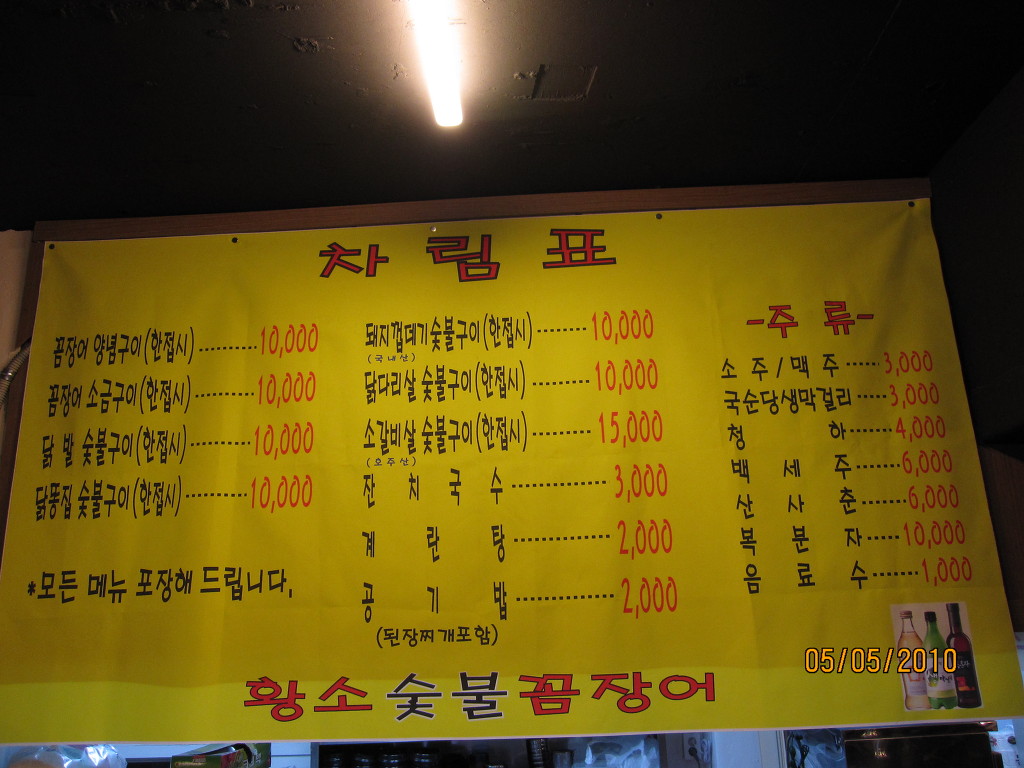 차림표
꼼장어 양념구이(한접시) 10,000
꼼장어 소금구이(한접시) 10,000
닭 발 숯불구이(한접시) 10,000
닭똥집 숯불구이(한접시) 10,000
*모든 메뉴 포장해 드립니다.
돼지껍데기숯불구이(한접시) 10,000
(국내산)
닭다리살 숯불구이(한접시) 10,000
소갈비살 숯불구이(한접시) 15,000
(호주산)
잔 치 국 수 3,000
계 란 탕 2,000
공 기 밥 2,000
(된장찌개포함)
-주 류-
소 주 / 맥 주 3,000
국순당생막걸리 3,000
청 하 4,000
백 세 주 6,000
산 사 춘 6,000
복 분 자 10,000
음 료 수 1,000
황소숯불꼼장어
05/05/2010